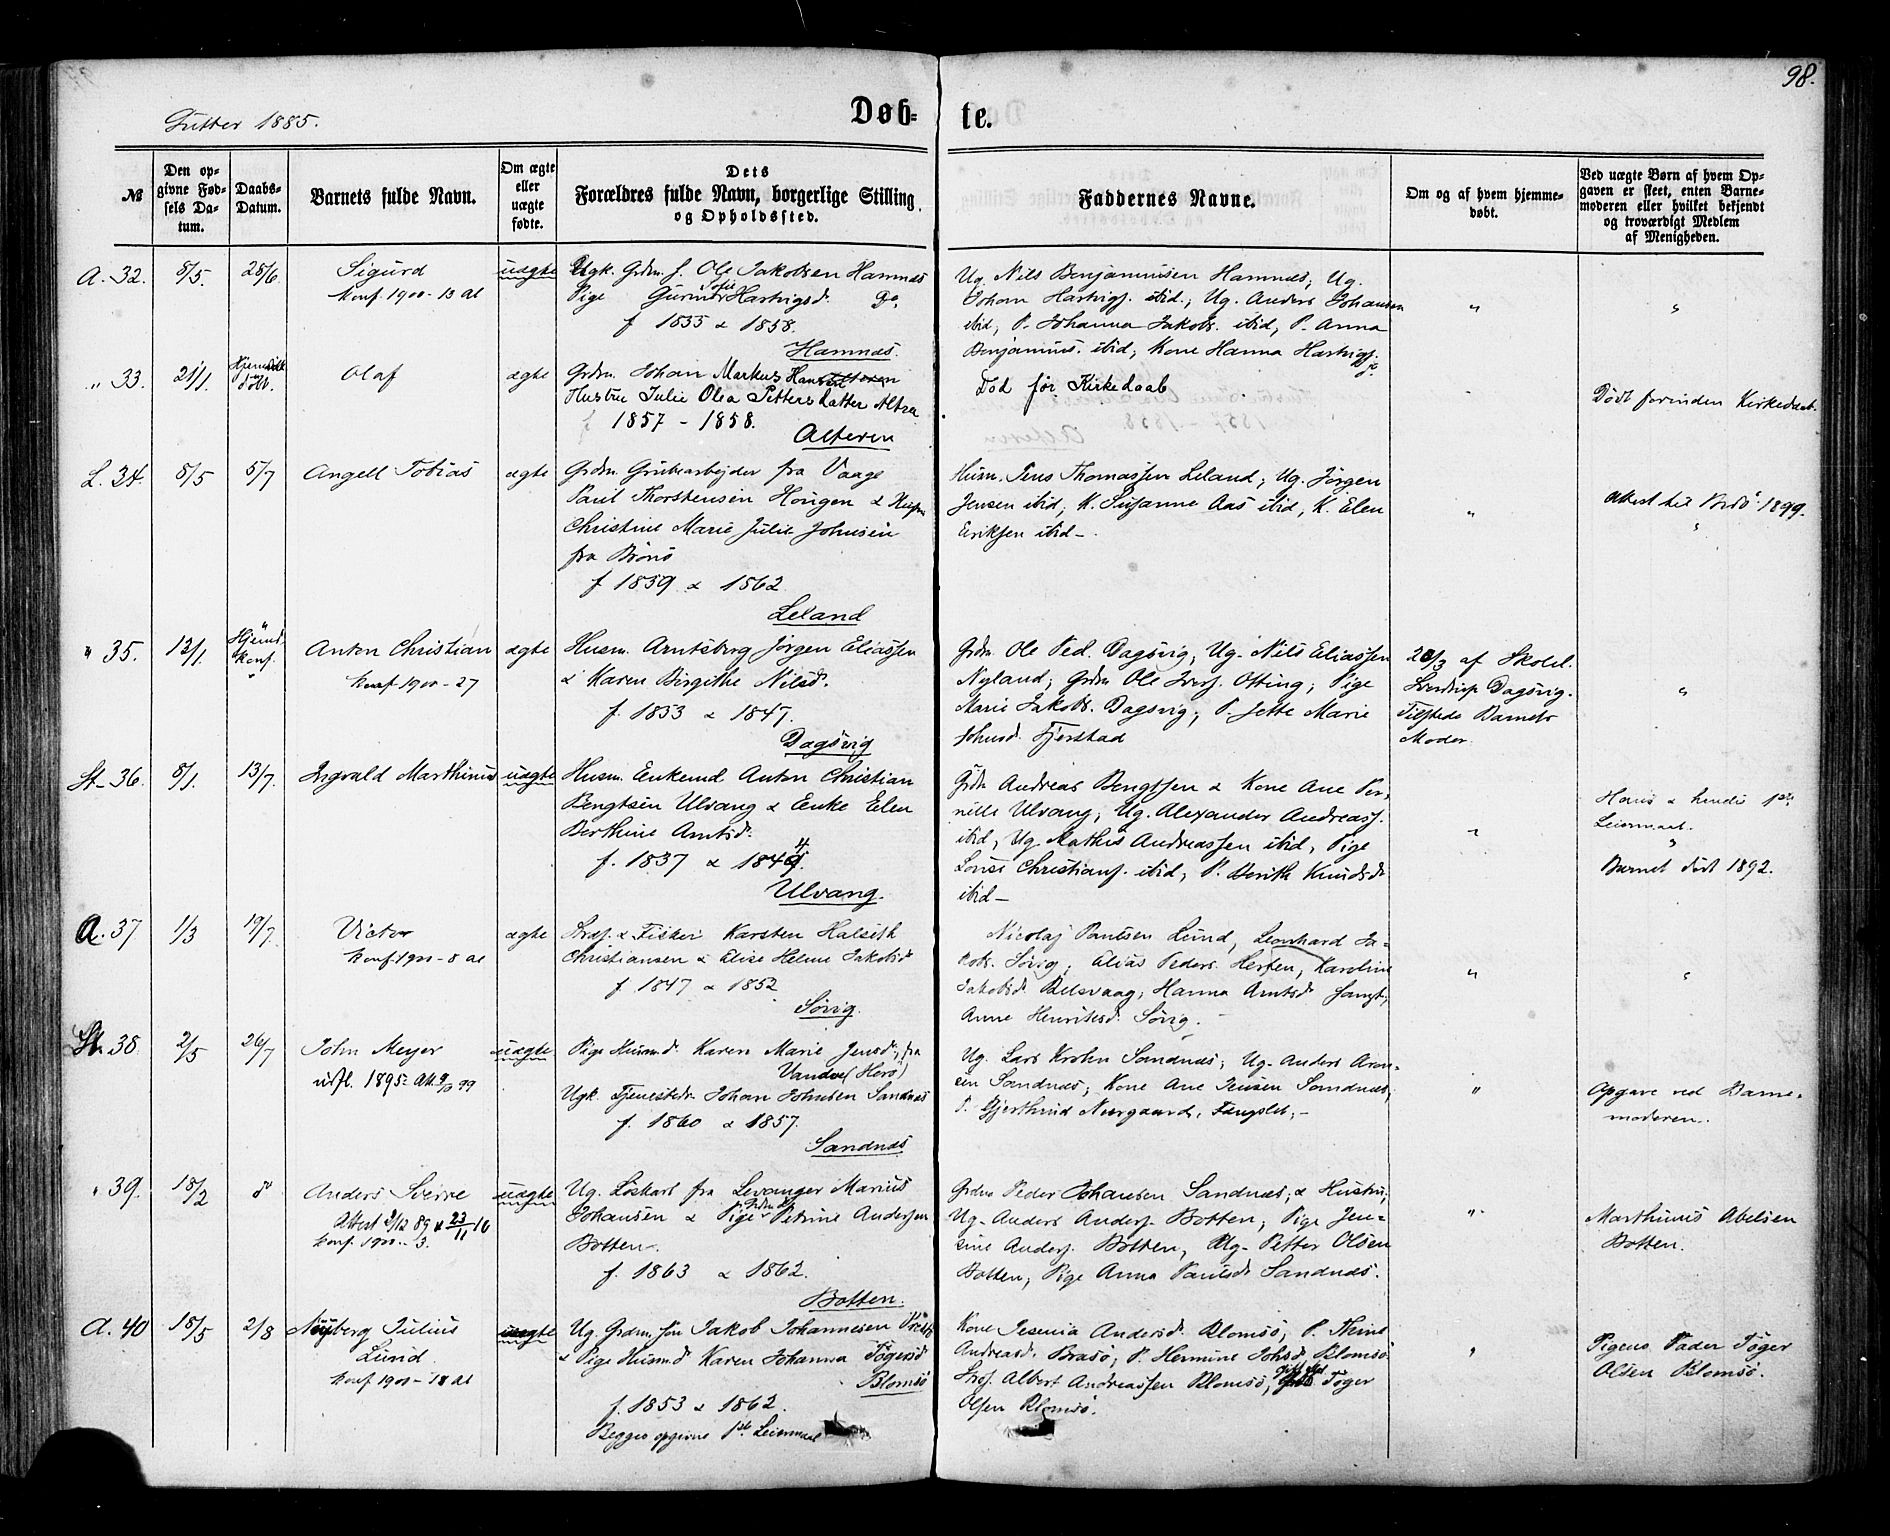 98.
Gutter 1885.
Døb-
te.
№
Den op-
givne Fød-
sels Da-
tum.
Daabs-
Datum.
Barnets fulde Navn.
Om ægte
eller
uægte
fødte.
Dets
Forældres fulde Navn, borgerlige Stilling
og Opholdssted.
Faddernes Navne.
Om og af hvem hjemme-
døbt.
Ved uægte Børn af hvem Op-
gaven er skeet, enten Barne-
moderen eller hvilket bekjendt
og troværdigt Medlem
af Menigheden.
A. 32. 8/5. 28/6. Sigurd uægte Ugk. Grdm. s. Ole Jakobsen Hamnæs
Konf. 1900 - 13 al
Pige Hartvigsd. Do
f 1835 & 1858.
Hamnæs.
Ug. Nils Benjaminsen Hamnæs, Ug.
Johan Hartvigs. ibid.; Ug. Anders Johansen
ibid, P. Johanna Jakobs. ibid, P. Anna
Benjamins. ibid, Kone Hanna Hartvigs.
" "
" 33. 21/1. Hjemme
døbt. Olaf ægte Grdm. Johan Markus
Hustru Julie Olea Petters Datter Altra
1857 - 1858.
Alteren
Død før Kirkedaab
Dødt forinden Kirkedaab.
L. 34. 8/5 5/7 Angell Tobias ægte Grdm. Grubearbejder fra Vaage
Paul Thorstensen Hougen &
Christine Marie Julie Johnsen
fra Brønø
f 1859 & 1862
Leland
Husm. Jens Thomassen Leland; Ug. Jørgen
Jensen ibid, K. Susanne Aas ibid, K. Elen
Eriksen ibid -.
"
Attest til Bodø 1899.
"
" 35. 12/1. Hjemd.
Konf. Anton Christian ægte Husm. Arntsberg Jørgen Eliassen
Konf 1900 - 27
& Karen Birgithe Nilsd.
f. 1833 & 1847.
Dagsvig
Grdm Ole Ped. Dagsvig, Ug. Nils Eliassen
Nyland; Grdm Ole Ivers. Ofting; Pige
Marie Jakobs. Dagsvig; P. Jette Marie
Johnsd. Fjerstad
/3 af Skolel.
Sverdrup Dagsvig.
Tilstede Barnets
Moder
"
St. 36. 8/1. 13/7. Ingvald Marthinus uægte Husm. Enkemd Anton Christian
Bengtsen Ulvang & Enke Elen
Berthine Arntsd.
f. 1837 & 184
Ulvang.
Grdm Andreas Bengtsen & Kone Ane Per-
nille Ulvang, Ug. Alexander Andreass.
ibid, Ug. Mathis Andreassen ibid, Pige
Louise Christians. ibid, P. Berith Knudsd
ibid -
"
Hans & hendes 1ste
Leiermaal.
Barnet død 1892.
A. 37 1/3 19/7. Victor ægte & Fisker Karsten Halseth
Konf. 1900 - 8 al
Christiansen & Elise Helene Jakobsd
f 1847 & 1852
Sørvig.
Nicolaj Paulsen Lund, Leonhard Ja-
kobs. Sørvig, Elias Peders. Herfen, Karoline
Jakobsd. Belsvaag, Hanna Arntsd ,
Anne Henriksd. Sørvig.
" "
St. 38 2/5 26/7 John Meyer uægte Pige Husmd. Karen Marie Jensd. fra
Vandve (Herø)
udfl. 1895 - At. 9/9 99
Ugk. Tjenestedr. Johan Johnsen Sandnæs
f. 1860 & 1857.
Sandnæs
Ug. Lars Krohn Sandnæs; Ug. Anders Aron-
sen Sandnæs; Kone Ane Jensen Sandnæs,
P. Gjerthrud Nergaard, -
"
Opgave ved Barne-
moderen.
" 39. 18/2 do Anders Sverre uægte Ug. Løskarl fra Levanger Marius
Attest 2/12 89 & 23/11 10
Konf. 1900 - 3.
Johansen & Pige Petrine Andersen
Botten.
f. 1863 & 1862.
Botten.
Grdm Peder Johansen Sandnæs, & Hustru,
Ug. Anders Anders. Botten, Pige Jen-
sine Anders. Botten, Ug. Petter Olsen
Botten, Pige Anna Paulsd. Sandnæs.
"
Marthinus Abelsen
Botten.
A. 40 18/5 2/8 Nyberg Julius
Lund.
Konf 1900 - 18 al
uægte Ug. Grdm. søn Jakob Johannesen
& Pige Husmd Karen Johanna Tøgersd
Blomsø
f. 1853 & 1862.
Begges opgivne 1ste Leiermaal
Kone Jesenia Andersd. Blomsø, P. Trine
Andreasd. Brasø, P. Hermine Johsd. Blomsø
Albert Andreassen Blomsø, Tøger
Olsen Blomsø.
"
Pigens Fader Tøger
Olsen Blomsø.